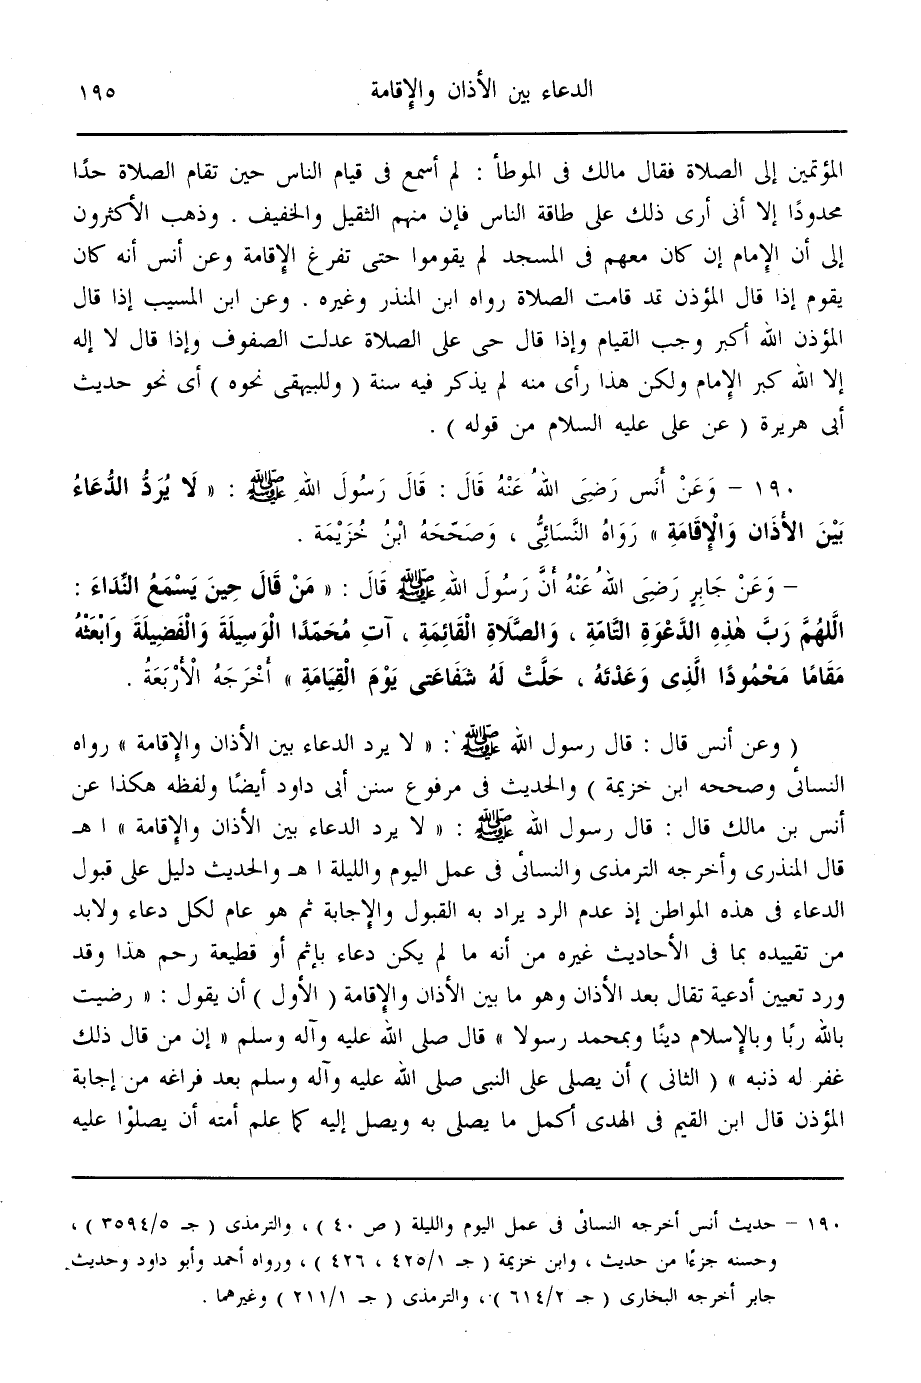 الدعاء بين الأذان والإقامة ١٩٥
المؤتمين إلى الصلاة فقال مالك فى الموطأ : لم أسمع فى قيام الناس حين تقام الصلاة حدًا
محدودًا إلا أنى أرى ذلك على طاقة الناس فإن منهم الثقيل والخفيف . وذهب الأكثرون
إلى أن الإمام إن كان معهم فى المسجد لم يقوموا حتى تفرغ الإقامة وعن أنس أنه كان
يقوم إذا قال المؤذن قد قامت الصلاة رواه ابن المنذر وغيره . وعن ابن المسيب إذا قال
المؤذن الله أكبر وجب القيام وإذا قال حى على الصلاة عدلت الصفوف وإذا قال لا إله
إلا الله كبر الإمام ولكن هذا رأى منه لم يذكر فيه سنة ( وللبيهقى نحوه ) أى نحو حديث
أبى هريرة ( عن على عليه السلام من قوله ) .
١٩٠ – وَعَنْ أَنَس رَضِىَ اللهُ عَنْهُ قَالَ : قَالَ رَسُولَ اللهِ ﷺ : « لَا يُرَدُّ الدُّعَاءُ
بَيْنَ الأَذَان وَالْإِقَامَةِ » رَوَاهُ النَّسَائِىُّ ، وَصَحّحَهُ ابْنُ خُزَيْمَة .
– وَعَنْ جَابِرٍ رَضِىَ اللهُ عَنْهُ أَنَّ رَسُولَ اللهِ ﷺ قَالَ : « مَنْ قَالَ حِينَ يَسْمَعُ النِّدَاءَ :
الَّلهُمَّ رَبَّ هٰذِهِ الدَّعْوَةِ التَّامّةِ ، وَالصَّلَاةِ الْقَائِمَةِ ، آتِ مُحَمّدًا الْوَسِيلَةَ وَالْفَضِيلَةَ وَابْعَثْهُ
مَقَامًا مَحْمُودًا الَّذِى وَعَدْتَهُ ، حَلَّتْ لَهُ شَفَاعَتى يَوْمَ الْقِيَامَةِ » أَخْرَجَهُ الْأَرْبَعَةُ .
( وعن أنس قال : قال رسول الله ﷺ : « لا يرد الدعاء بين الأذان والإقامة » رواه
النسائى وصححه ابن خزيمة ) والحديث فى مرفوع سنن أبى داود أيضًا ولفظه هكذا عن
أنس بن مالك قال : قال رسول الله ﷺ : « لا يرد الدعاء بين الأذان والإقامة » ا هـ
قال المنذرى وأخرجه الترمذى والنسائى فى عمل اليوم والليلة ا هـ والحديث دليل على قبول
الدعاء فى هذه المواطن إذ عدم الرد يراد به القبول والإجابة ثم هو عام لكل دعاء ولابد
من تقييده بما فى الأحاديث غيره من أنه ما لم يكن دعاء بإثم أو قطيعة رحم هذا وقد
ورد تعيين أدعية تقال بعد الأذان وهو ما بين الأذان والإقامة ( الأول ) أن يقول : « رضيت
بالله ربًا وبالإسلام دينًا وبمحمد رسولا » قال صلى الله عليه وآله وسلم « إن من قال ذلك
غفر له ذنبه » ( الثانى ) أن يصلى على النبى صلى الله عليه وآله وسلم بعد فراغه من إجابة
المؤذن قال ابن القيم فى الهدى أكمل ما يصلى به ويصل إليه كما علم أمته أن يصلوا عليه
١٩٠ – حديث أنس أخرجه النسائى فى عمل اليوم والليلة ( ص ٤٠ ) ، والترمذى ( جـ ٣٥٩٤/٥ ) ،
وحسنه جزءًا من حديث ، وابن خزيمة ( جـ ٤٢٥/١ ، ٤٢٦ ) ، ورواه أحمد وأبو داود وحديث
جابر أخرجه البخارى ( جـ ٦١٤/٢ ) ، والترمذى ( جـ ٢١١/١ ) وغيرهما .